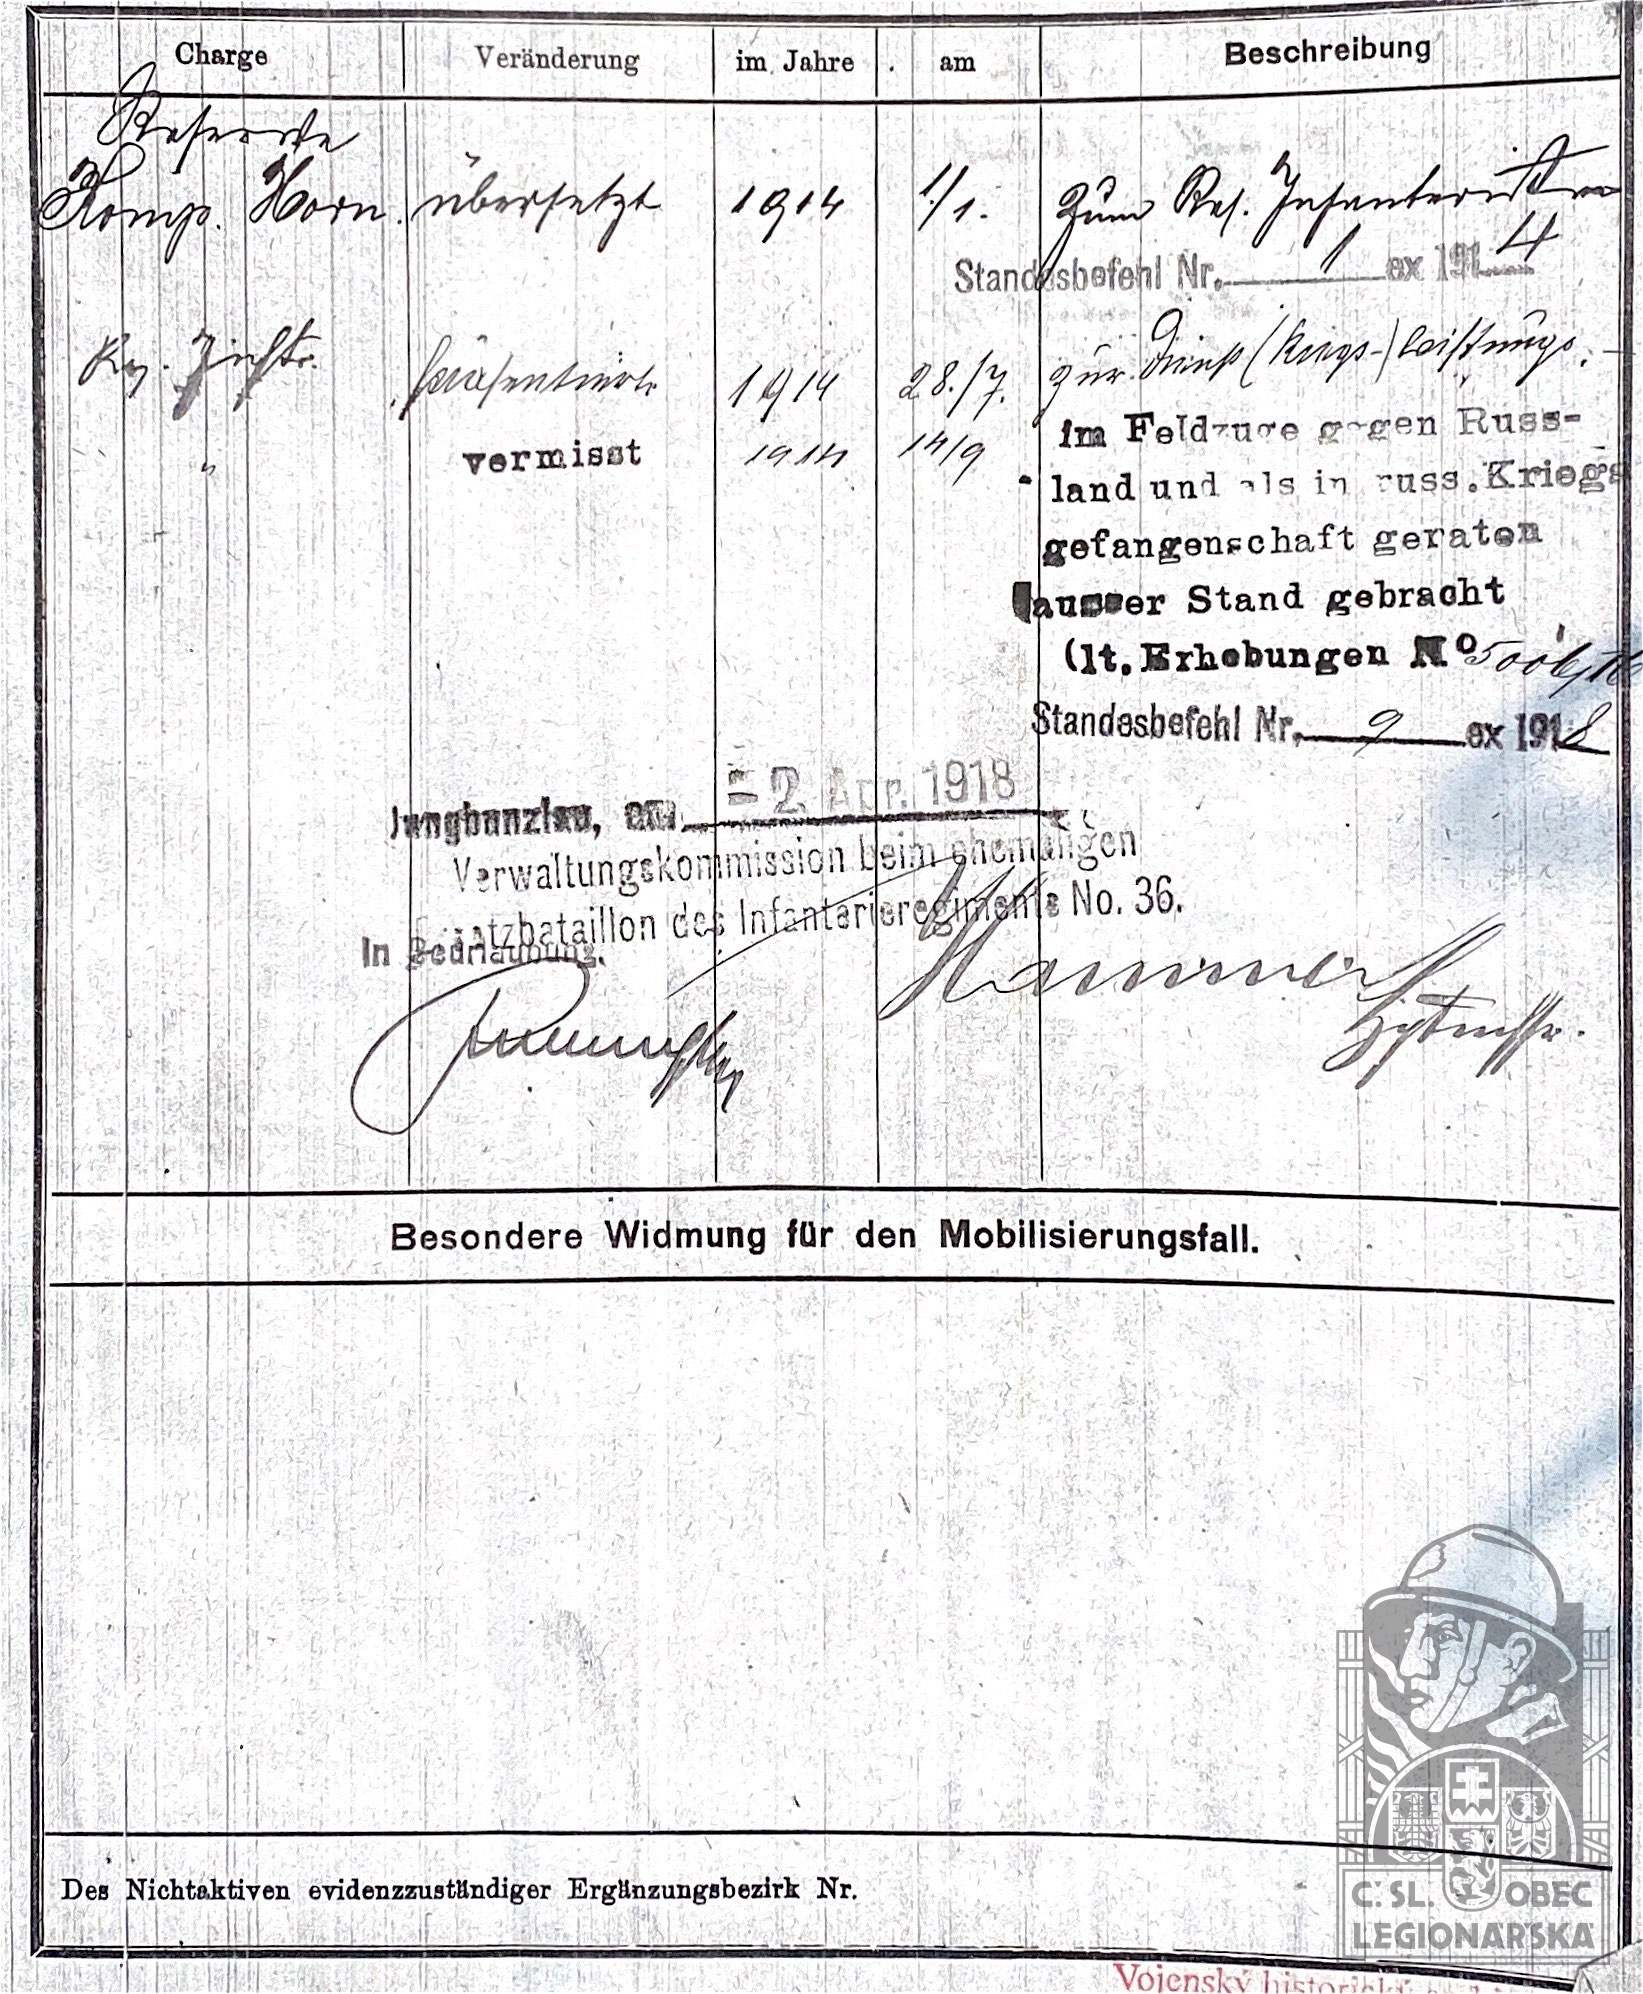 Charge Veränderung im Jahre am Beschreibung
Reserve
Komp. Horn. übersetzt 1914 1./1. zum Res. Infanteristen
Standesbefehl Nr. 1 ex 1914
präsentiert 1914 28./7. zur Dienst (Kriegs-) leistung
vermisst 1914 14/9 im Feldzuge gegen Russ-
" land und als in russ. Kriegs
gefangenschaft geraten
ausser Stand gebracht
(lt. Erhebungen No
Standesbefehl Nr. 9 ex 1918
Jungbunzlau, am 2. Apr. 1918
Verwaltungskommission beim ehemaligen
Ersatzbataillon des Infanterieregiments No. 36.
In Beurlaubung.
Besondere Widmung für den Mobilisierungsfall.
Des Nichtaktiven evidenzzuständiger Ergänzungsbezirk Nr.
Č.SL. OBEC
LEGIONÁŘSKÁ
Vojenský